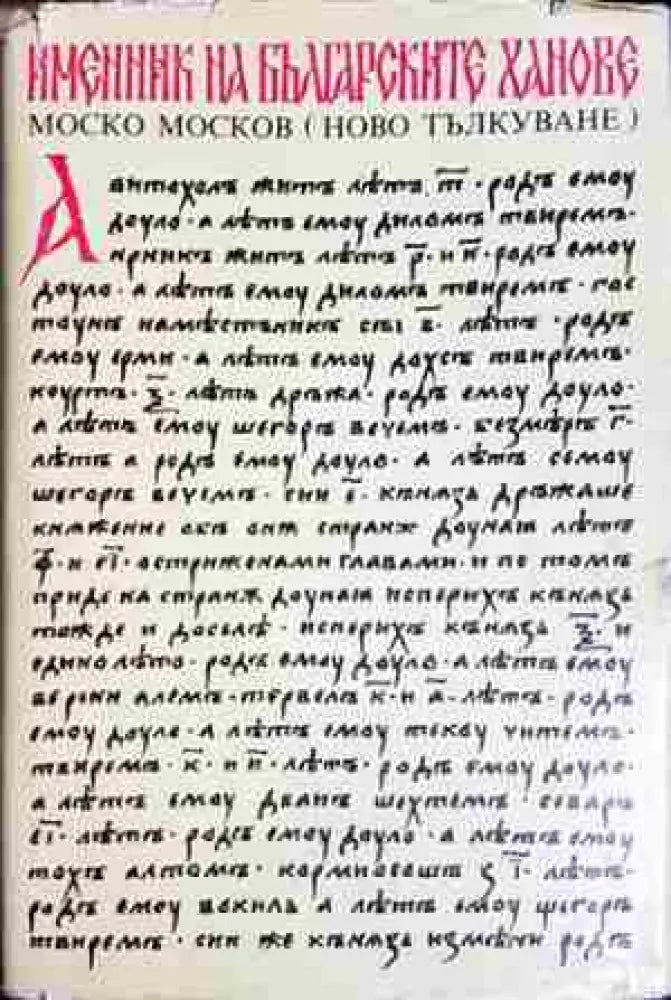 ИМЕННИК НА БЪЛГАРСКИТЕ ХАНОВЕ
МОСКО МОСКОВ (НОВО ТЪЛКУВАНЕ)
Авитохолъ житъ лѣтъ т҃· родъ емоу
доуло· а лѣтъ емоу диломъ твиремъ·
ирникъ житъ лѣтъ р҃· и н҃· родъ емоу
доуло· а лѣтъ емоу диломъ твиремъ· гос
тоунъ намѣстьникъ сы в҃· лѣтъ· родъ
емоу ерми· а лѣтъ емоу дохсъ твиремъ·
коуртъ· ѯ҃· лѣтъ дръжа· родъ емоу доуло·
а лѣтъ емоу шегоръ вечемь· безмѣръ г҃·
лѣтъ а родъ емоу доуло· а лѣтъ семоу
шегоръ вечемь· сии е҃· кънѧзъ дръжаше
княжение обь онѫ странѫ доунаꙗ лѣтъ
ф҃· и еі҃· остриженами главами· и по томь
приде на странѫ доунаꙗ исперихъ кънѧзъ
тожде и доселѣ· исперихъ кънѧзъ ѯ҃· и
едино лѣто· родъ емоу доуло· а лѣтъ емоу
верени алемъ· тервель к҃· и а҃· лѣтъ· родъ
емоу доуло· а лѣтъ емоу текоу читемь·
твиремь· к҃· и и҃· лѣтъ· родъ емоу доуло·
а лѣтъ емоу дванъ шехтемь· севаръ
еі҃· лѣтъ· родъ емоу доуло· а лѣтъ емоу
тохъ алтомь· кормисошь з і҃· лѣтъ·
родъ емоу вокиль а лѣтъ емоу шегоръ
твиремь· сии же кънѧзь измѣни родъ